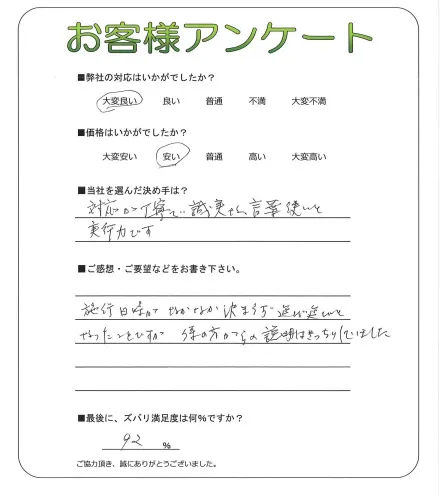 お客様アンケート
■弊社の対応はいかがでしたか？
大変良い 良い 普通 不満 大変不満
■価格はいかがでしたか？
大変安い 安い 普通 高い 大変高い
■当社を選んだ決め手は？
対応が丁寧で誠実さ、言葉使いと
実行力です
■ご感想・ご要望などをお書き下さい。
施行日時がなかなか決まらず延び延びと
なったことですが の方からの説明はきっちりしていました
■最後に、ズバリ満足度は何％ですか？
92 ％
ご協力頂き、誠にありがとうございました。